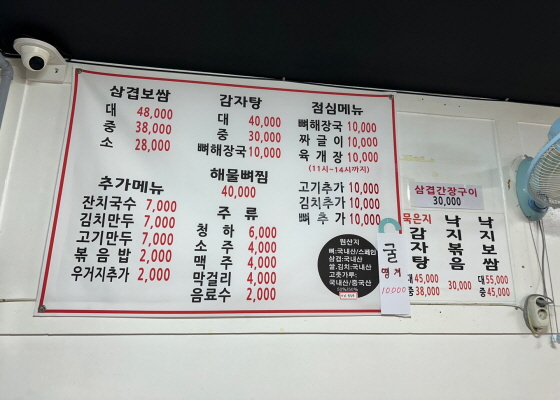 삼겹보쌈
대 48,000
중 38,000
소 28,000
감자탕
대 40,000
중 30,000
뼈해장국 10,000
점심메뉴
뼈해장국 10,000
짜글이 10,000
육개장 10,000
(11시~14시까지)
추가메뉴
잔치국수 7,000
김치만두 7,000
고기만두 7,000
볶음밥 2,000
우거지추가 2,000
해물뼈찜
40,000
주류
청하 6,000
소주 4,000
맥주 4,000
막걸리 4,000
음료수 2,000
고기추가 10,000
김치추가 10,000
뼈추가 10,000
원산지
뼈:국내산/스페인
삼겹:국내산
쌀,김치:국내산
고춧가루:
국내산/중국산
50%/50%
굴
10000
삼겹간장구이
30,000
묵은지
감자탕
대 45,000
중 38,000
낙지볶음
30,000
낙지보쌈
대 55,000
중 45,000